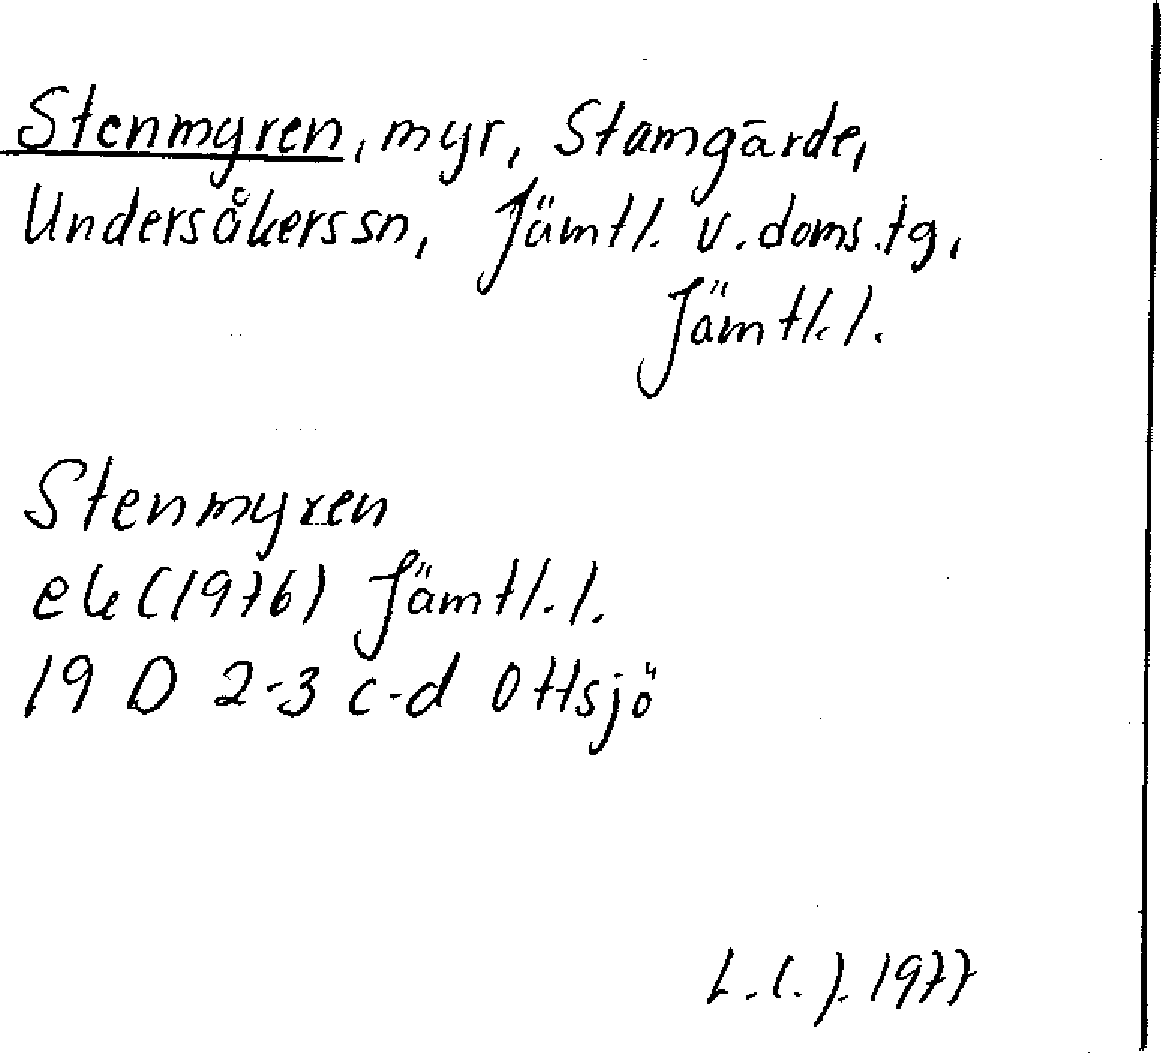 Stenmyren, myr, Stamgärde,
Undersåkers sn, Jämtl. v. doms. tg,
Jämtl. l.
Stenmyren
ek (1976) Jämtl. l.
19 D 2-3 c-d Ottsjö
L. C. J. 1977